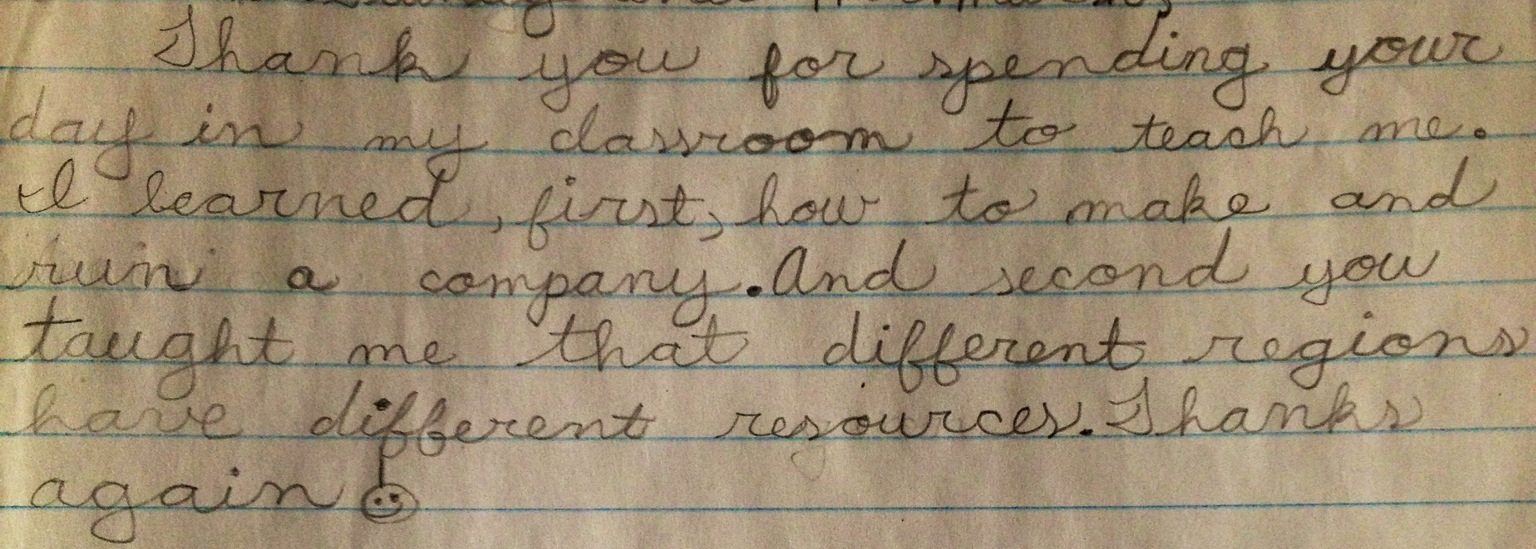 Thank you for spending your
day in my classroom to teach me.
I learned, first, how to make and
run a company. And second you
taught me that different regions
have different resources. Thanks
again!